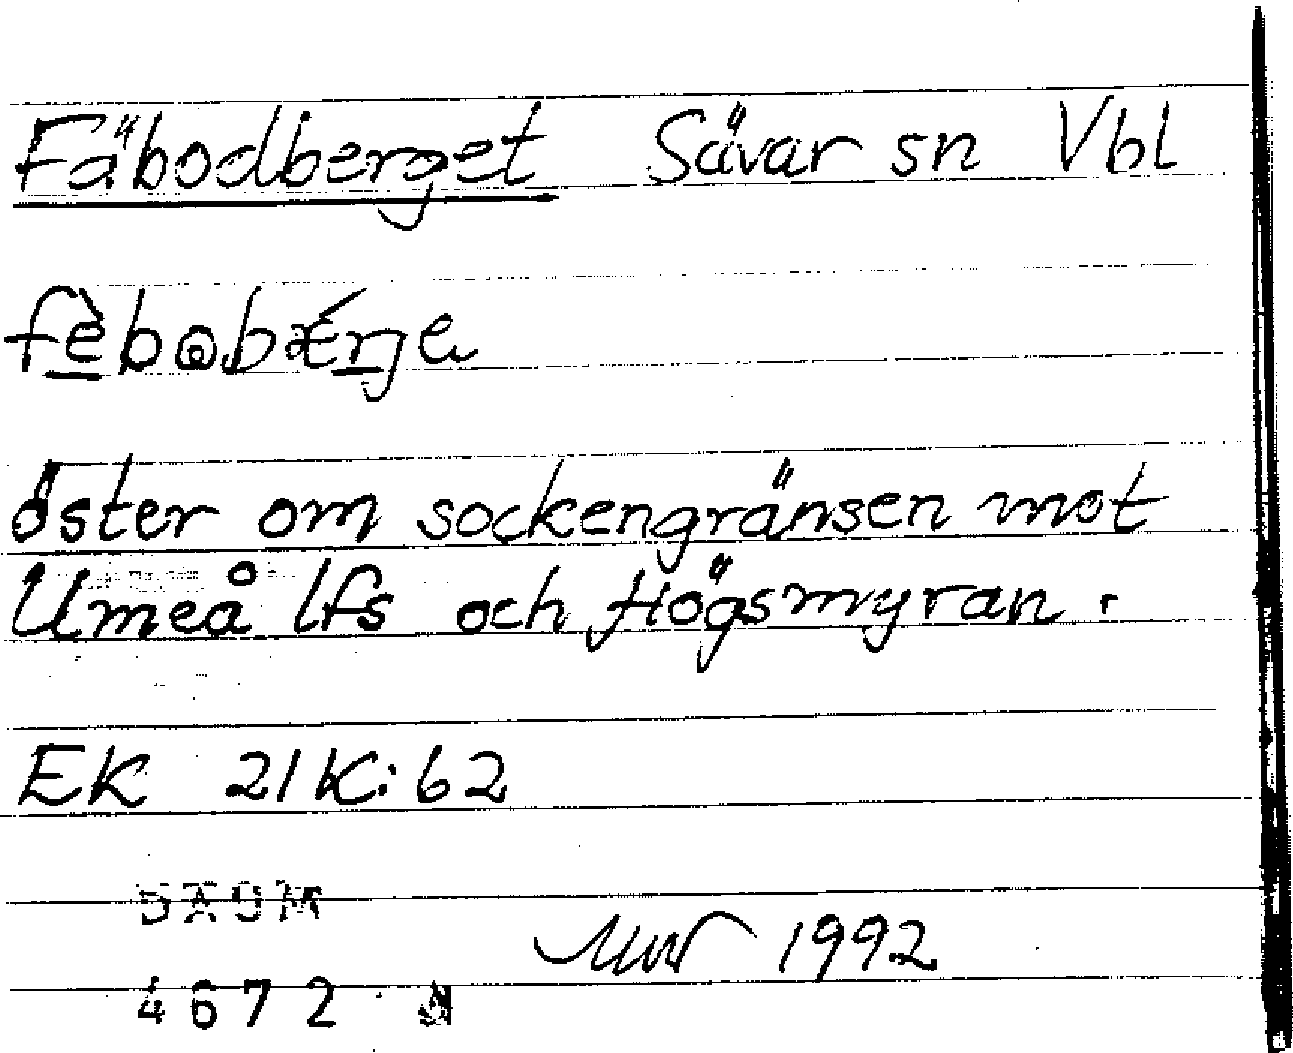 Fäbodberget Sävar sn Vbl
öster om sockengränsen mot
Umeå lfs och Högsmyran.
EK 21K:62
DAUM
1992
4672